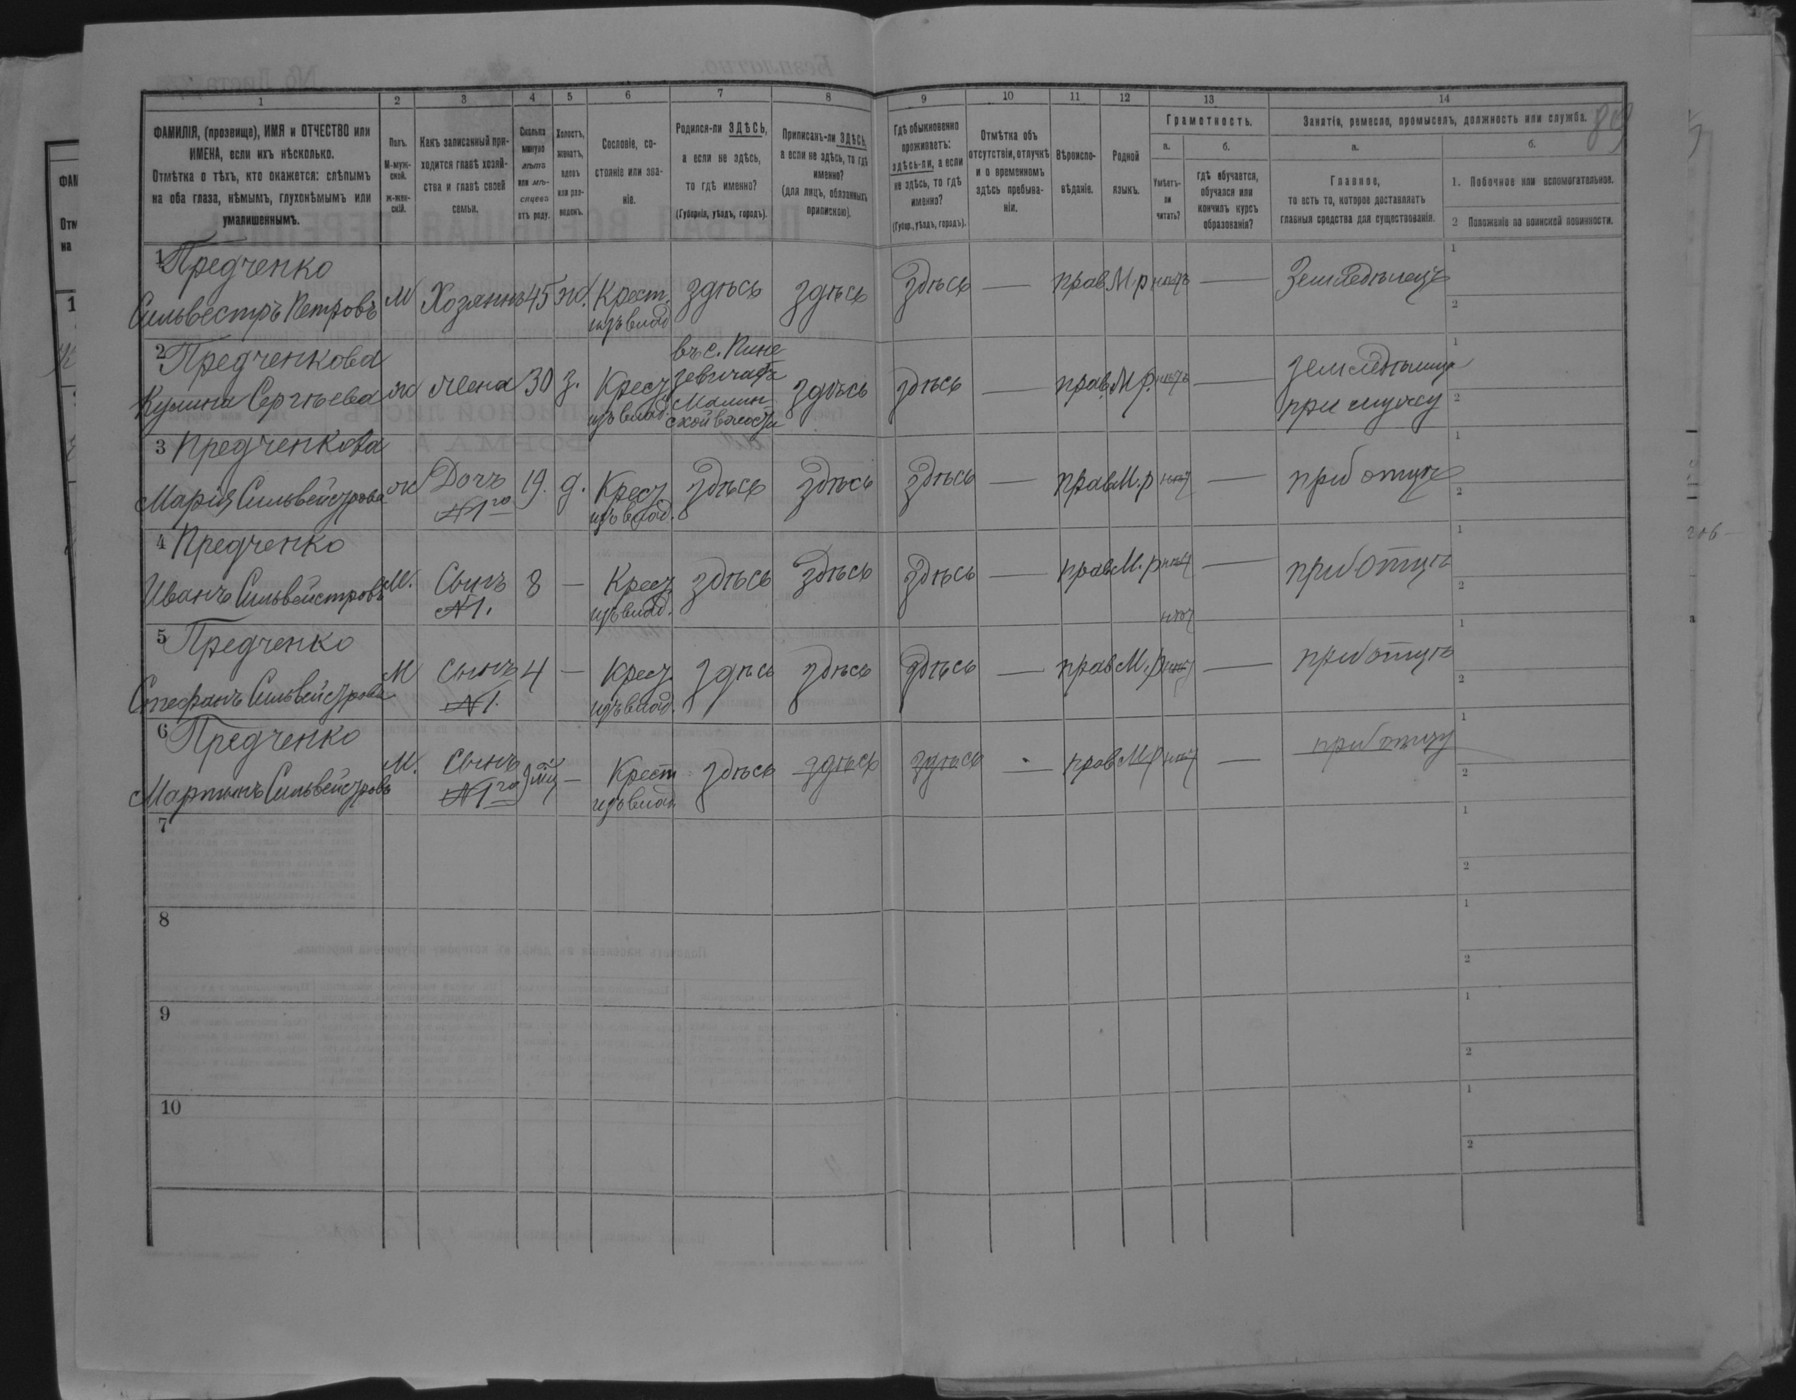 1 2 3 4 5 6 7 8 9 10 11 12 13 14
ФАМИЛІЯ, (прозвище), ИМЯ и ОТЧЕСТВО или
ИМЕНА, если ихъ нѣсколько.
Отмѣтка о тѣхъ, кто окажется: слѣпымъ
на оба глаза, нѣмымъ, глухонѣмымъ или
умалишеннымъ.
Полъ.
М-муж-
ской.
Ж-жен-
скій.
Какъ записанный при-
ходится главѣ хозяй-
ства и главѣ своей
семьи.
Сколько
минуло
лѣтъ
или мѣ-
сяцевъ
отъ роду.
Холостъ,
женатъ,
вдовъ
или раз-
веденъ.
Сословіе, со-
стояніе или зва-
ніе.
Родился-ли ЗДѢСЬ,
а если не здѣсь,
то гдѣ именно?
(Губернія, уѣздъ, городъ).
Приписанъ-ли ЗДѢСЬ,
а если не здѣсь, то гдѣ
именно?
(для лицъ, обязанныхъ
припискою).
Гдѣ обыкновенно
проживаетъ:
здѣсь-ли, а если
не здѣсь, то гдѣ
именно?
(Губер., уѣздъ, городъ).
Отмѣтка объ
отсутствіи, отлучкѣ
и о временномъ
здѣсь пребыва-
ніи.
Вѣроиспо-
вѣданіе.
Родной
языкъ.
Грамотность.
а.
Умѣетъ-
ли
читать?
б.
Гдѣ обучается,
обучался или
кончилъ курсъ
образованія?
Занятія, ремесло, промыселъ, должность или служба.
а.
Главное,
то есть то, которое доставляетъ
главныя средства для существованія.
б.
1. Побочное или вспомогательное.
2 Положеніе по воинской повинности.
1 Предченко
Сильвестръ Петровъ М Хозяинъ 45 ж. Крест. здѣсь здѣсь здѣсь — прав М.р нѣтъ — Земледѣлецъ
изъ влад.
2 Предченкова
Кулина Сергѣева ж жена 30 з. Крест. здѣсь здѣсь — прав. М.р. нѣтъ — земледѣлица
изъ влад. при мужу
въ с. Пине
зевичахъ
Малин
ской волости
3 Предченкова
Марія Сильвейстрова ж Дочь 19. д. Крест. здѣсь здѣсь здѣсь — прав М.р нѣт — при отцѣ
N 1го изъ влад.
4 Предченко
Иванъ Сильвейстровъ М. Сынъ 8 — Крест. здѣсь здѣсь здѣсь — прав М.р нѣт — при отцѣ
N 1. изъ влад.
нѣт
5 Предченко
Стефанъ Сильвейстровъ М сынъ 4 — Крест. здѣсь здѣсь здѣсь — прав М.р — при отцѣ
N 1. изъ влад.
6 Предченко
Мартынъ Сильвейстровъ М. Сынъ — Крест здѣсь здѣсь здѣсь — прав М.р нѣт — при отцу
N 1го изъ влад.
7
8
9
10